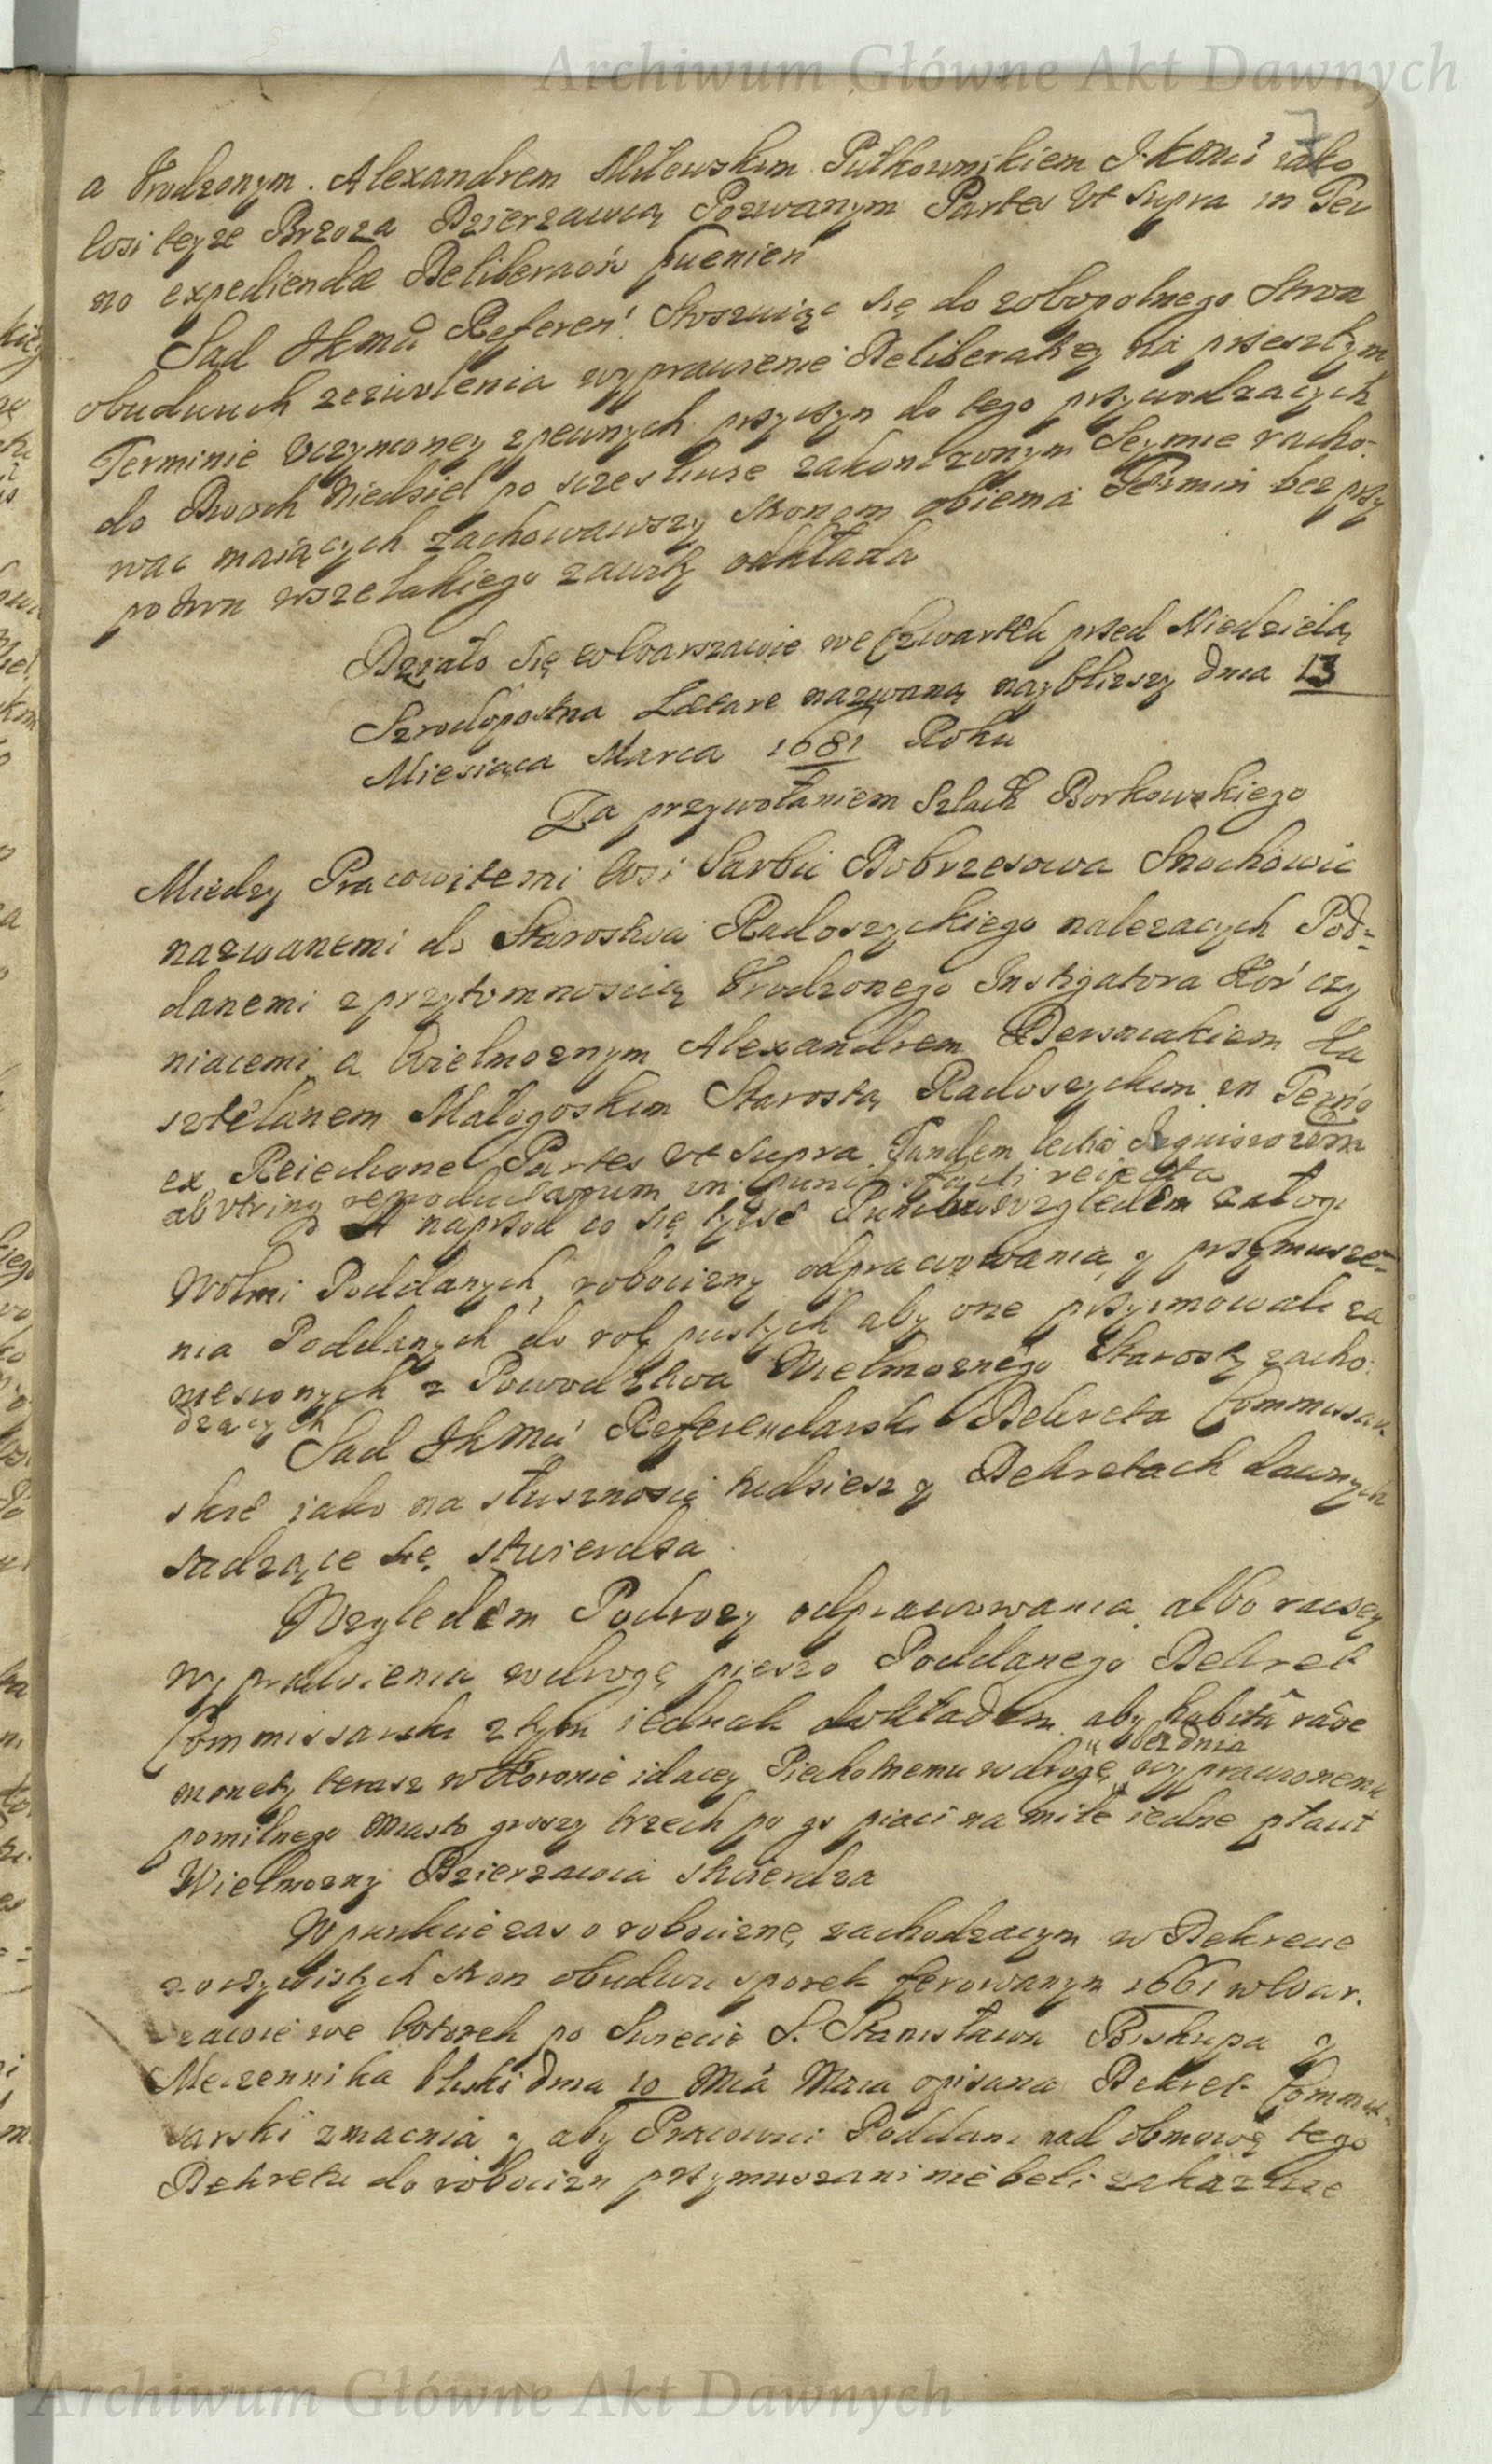 Archiwum Główne Akt Dawnych
7
a Vrodzonym Alexandrem Milewskim Pułkownikiem J. K Mći iako
wsi teyże Brzoza Dzierzawcą Pozwanym Partes Vt Supra in Ter
no expediendæ Deliberaoń
Sad JKMći Referen Stosuiąc się do zobopolnego Stron
obuduuch zezwolenia wyprawienie Deliberatiey na przeszłym
Terminie Vczynioney zpewnych przyczyn do tego przywodzacych
do Dwoch Niedziel po szczesliwie zakonczonym Seymie racho-
wac maiących zachowawszy stronom obiema Termin bez przy
pozwu wszelakiego zawity odkłada
Działo się w Warszawie we Czwartek przed Niedzielą
Szrodopostna Lætare nazwaną nayblizszy dnia 13
Miesiąca Marca 1681 Roku
Za przywołaniem Szlach Borkowskiego
Miedzy Pracowitemi Wsi Sarbic Dobrzesowa Snochowic
nazwanemi do Starostwa Radoszyckiego nalezacych Pod-
danemi z przytomnoscią Vrodzonego Instigatora Kor czy
niacemi a Wielmoznym Alexandrem Dersniakiem Ka
sztelanem Małogoskim Starostą Radoszyckim in Termo
ex Reiectione Partes Vt Supra Tandem
ab vtrinq reproductarum in puncto facti reiecta
A naprzod co się tycze Punctu względem załogi
Wolmi Poddanych, robocizny odpracowania y przymusze-
nia Poddanych do rolę pustych aby one przyimowali za
niesionych z Powodztwa Wielmoznego Starosty zacho-
dzących
Sad JKMći Referendarski Dekreta Commissar-
skie iako na słusznosci tudziesz y Dekretach dawnych
sadzące się stwierdza
Względem Podrozy odprawowania albo raczey
wyprawienia w drogę pieszo Poddanego Dekret
Commissarski z tym iednak dokładem aby habita raōe
bez dnia
monety terasz w Koronie idacey Piechotnemu w drogę wyprawionemu
pomilnego miasto groszy trzech po gr piaci na milę iedne płacił
Wielmozny Dzierzawca stwierdza
W punkcie zas o robociznę zachodzacym w Dekrecie
z oczywistych stron obudwu sporek ferowanym 1661 w War.
szawie we Wtorek po Swięcie S. Stanisława Biskupa y
Meczennika bliski dnia 10 Mca Maia opisana Dekret Commis-
sarski zmacnia y aby Pracowici Poddani nad obmowę tego
Dekretu do robocizn przymuszani nie beli zakazuie
Archiwum Główne Akt Dawnych